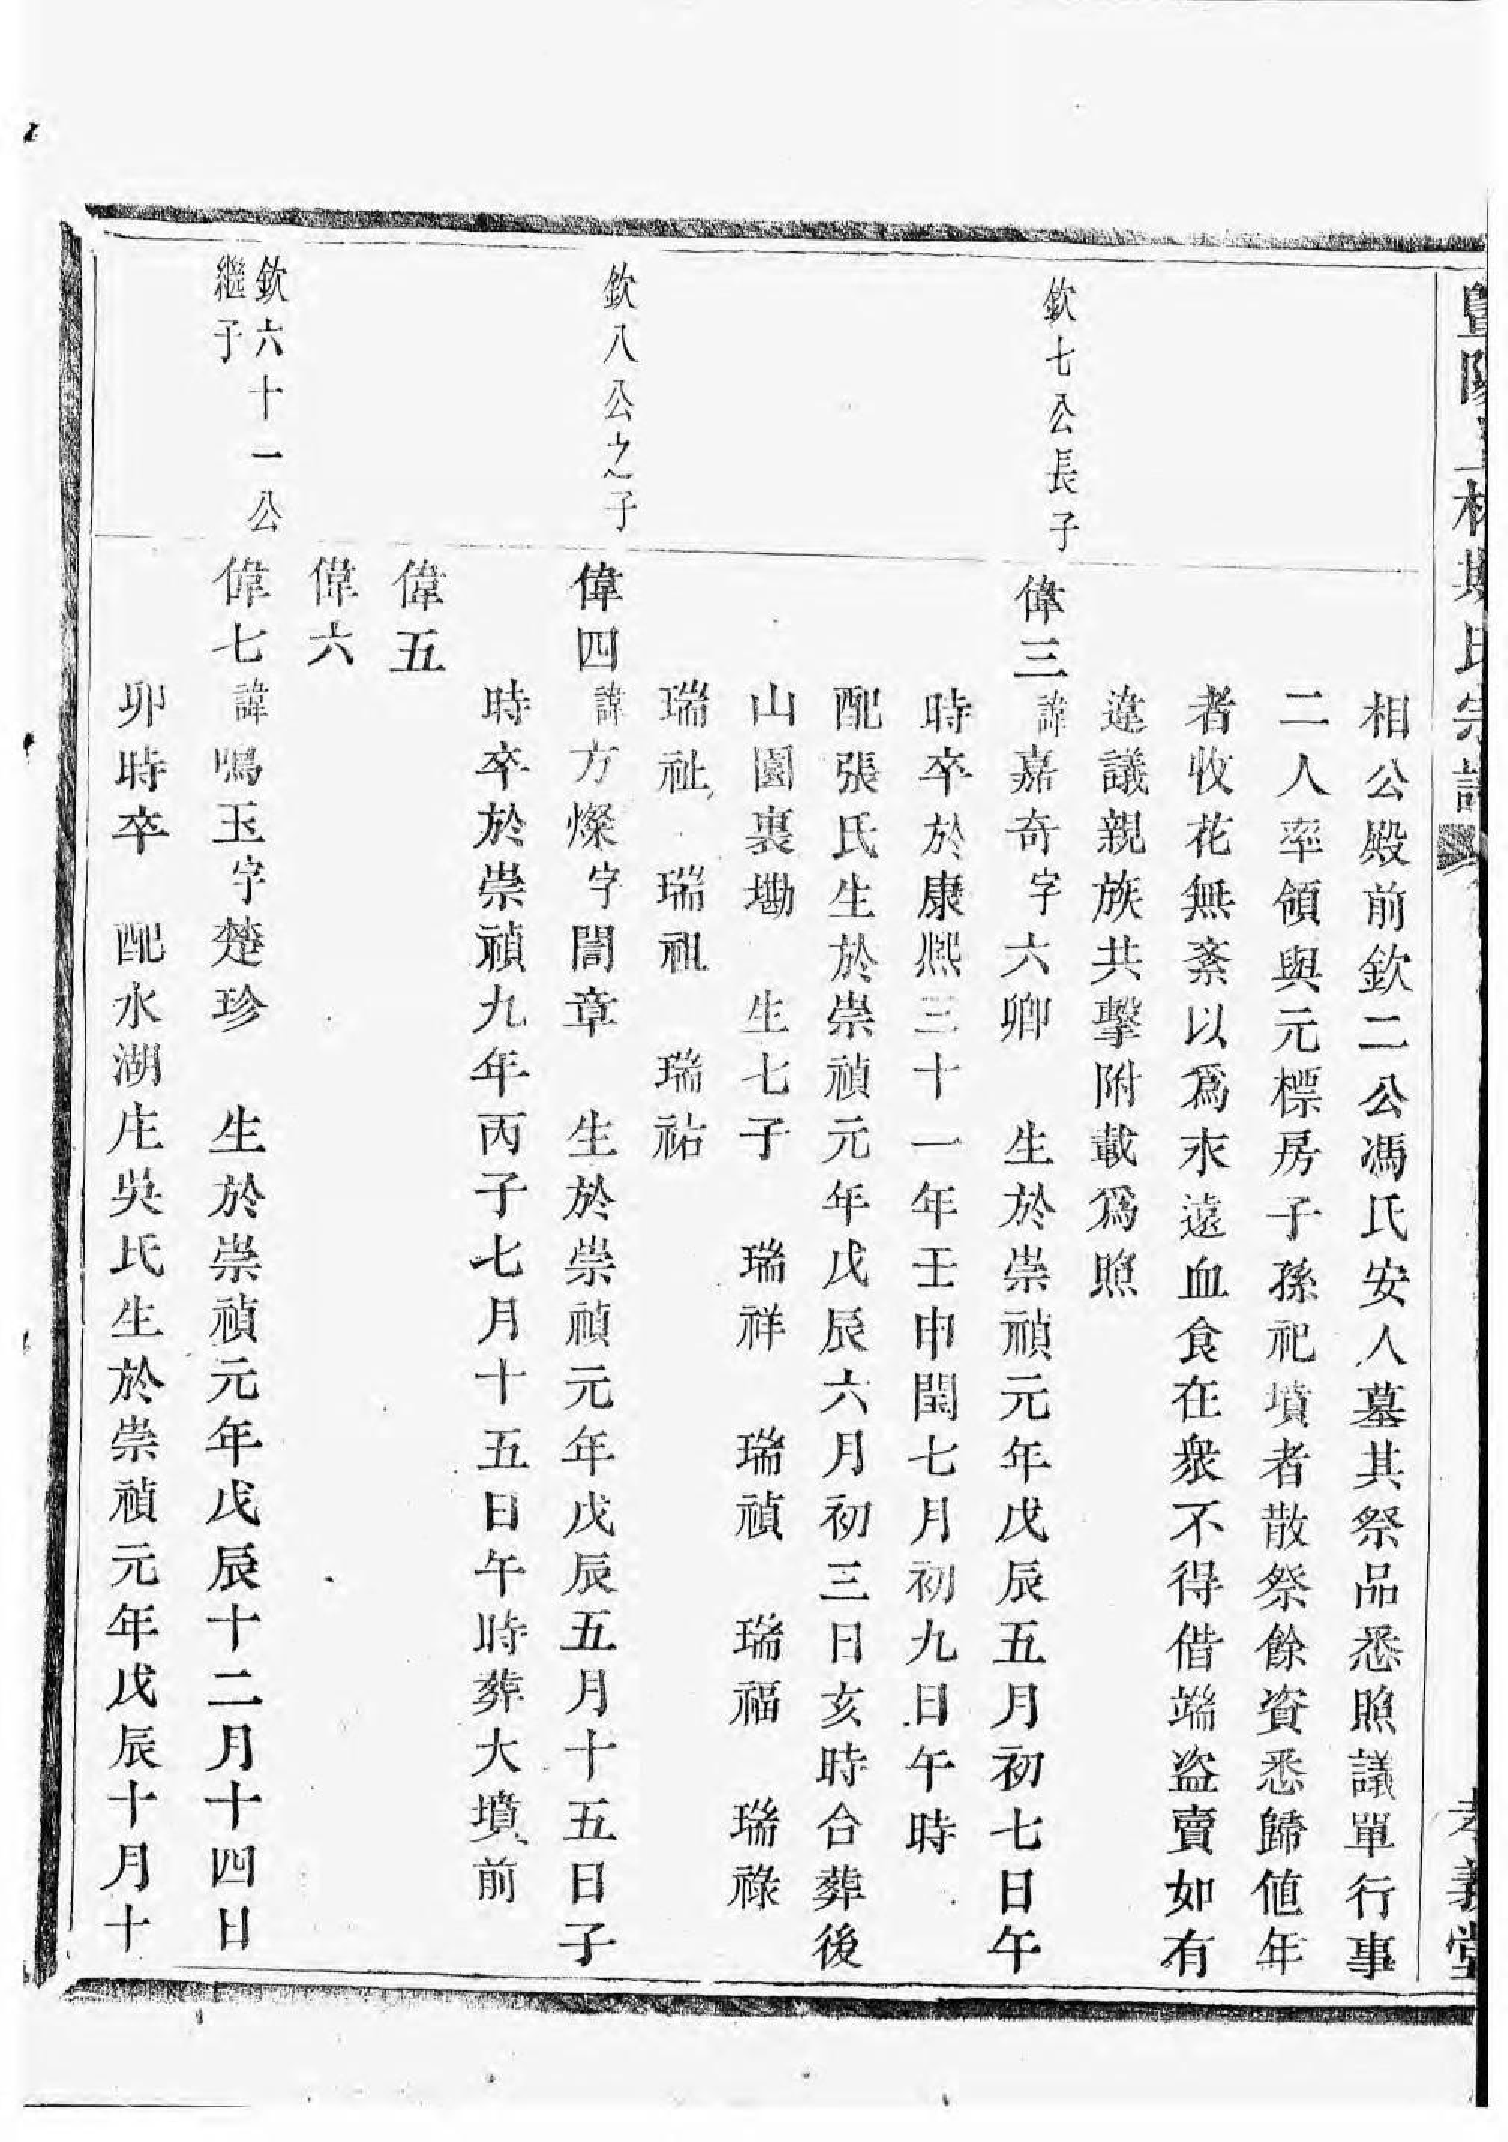 暨陽上林斯氏宗譜
孝義堂
相公殿前欽二公馮氏安人墓其祭品悉照議單行事
二人率領與元標房子孫祀墳者散祭餘資悉歸值年
者收花無紊以為永遠血食在衆不得借端盜賣如有
違議親族共擊附載爲照
欽七公長子
偉三諱嘉奇字六卿 生於崇禎元年戊辰五月初七日午
時卒於康熙三十一年壬申閏七月初九日午時
配張氏生於崇禎元年戊辰六月初三日亥時合葬後
山園裏墈 生七子 瑞祥 瑞禎 瑞福 瑞祿
瑞祉 瑞祖 瑞祐
欽八公之子
偉四諱方燦字闇章 生於崇禎元年戊辰五月十五日子
時卒於崇禎九年丙子七月十五日午時葬大墳前
偉五
偉六
欽六十一公
繼子
偉七諱鳴玉字楚珍 生於崇禎元年戊辰十二月十四日
卯時卒 配水湖庄吳氏生於崇禎元年戊辰十月十